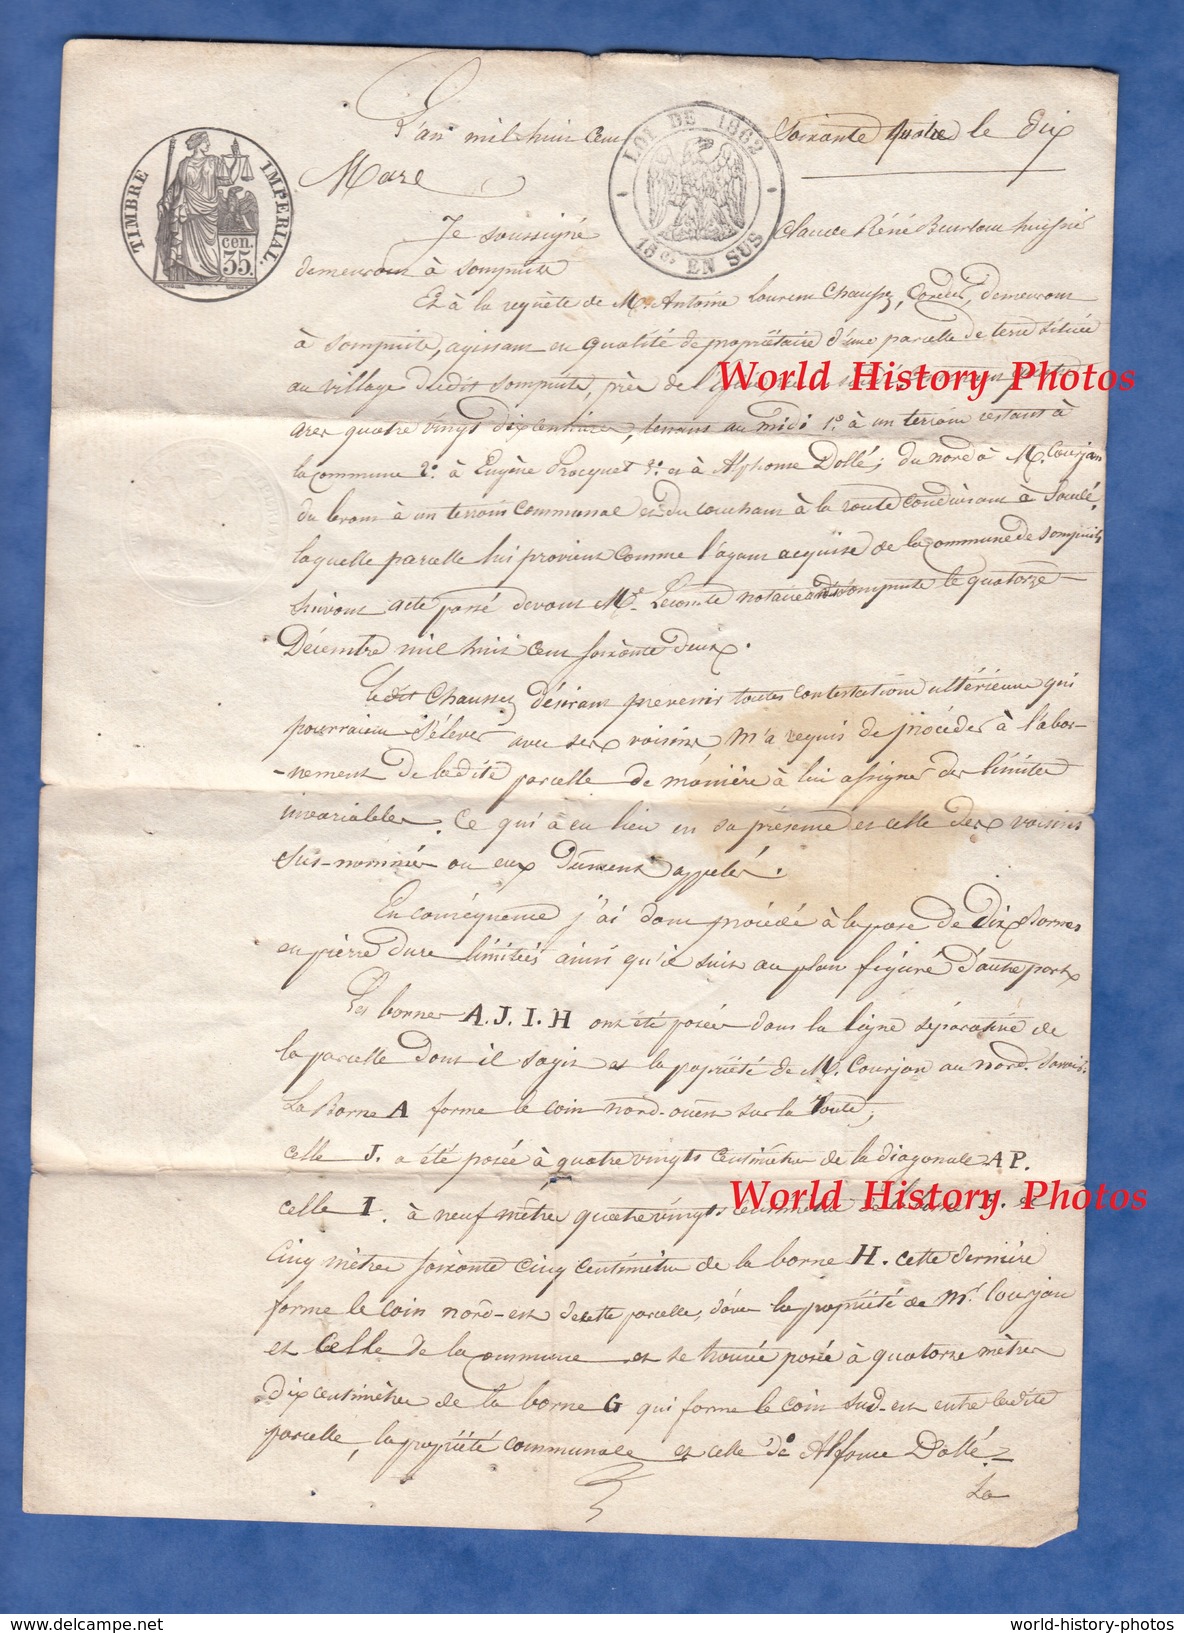 TIMBRE IMPERIAL.
cen. 35.
LOI DE 1862
15 cs EN SUS
L'an mil huit cent Soixante quatre le dix
Mars
Je soussigné Claude Réné
demeurant à Sompuite
Et à la requête de Mr. Antoine Laurent Chaussez, demeurant
à Sompuite, agissant en qualité de propriétaire d'une parcelle de terre située
au village dudit Sompuite, près de
ares quatre vingt dix centiares, tenant au midi 1º à un terrain restant à
la commune 2º à Eugène Procquet 3º et à Alphonse Dollé; du nord à M. Courjan
du levant à un terrain communal et du couchant à la route conduisant à Soudé,
laquelle parcelle lui provient comme l'ayant acquise de la commune de Sompuite
suivant acte passé devant Me. Lecomte notaire à Sompuite le quatorze
Décembre mil huit cent soixante deux.
Ledit Chaussez désirant prevenir toutes contestations ultérieures qui
pourraient s'élever avec ses voisins, m'a requis de procéder à l'abor-
-nement de ladite parcelle de manière à lui assigner des limites
invariables. Ce qui a eu lieu en sa présence et celle des voisins
sus-nommés ou eux dûment appelés.
En conséquence j'ai donc procédé à la pose de dix bornes
en pierre dure limitées ainsi qu'il suit au plan figuré d'autre part
Les bornes A. J. I. H ont été posées dans la ligne séparative de
la parcelle dont il s'agit et la propriété de M. Courjan au nord. Savoir:
La Borne A forme le coin nord-ouest sur la Route;
celle J. a été posée à quatre vingts centimètres de la diagonale AP.
celle I. à neuf mètres quatre vingts centimètres de la borne J. et
Cinq mètres soixante cinq centimètres de la borne H. cette dernière
forme le coin nord-est de cette parcelle, d'avec la propriété de Mr. Courjan
et Celle de la Commune et se trouve posée à quatorze mètres
dix centimètres de la borne G qui forme le coin sud-est entre ladite
parcelle, la propriété communale et celle de Alfonce Dollé.
La
World History Photos
World History Photos
world-history-photos
delcampe.net
world-history-photos